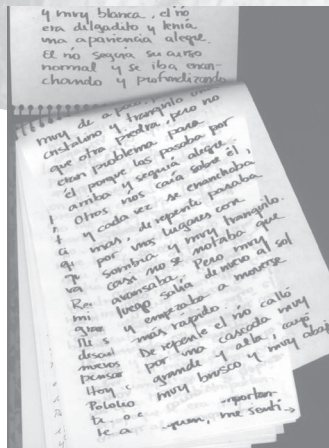 y muy blanca, el río
era delgadito y tenía
una apariencia alegre.
El río seguía su curso
normal y se iba ensan-
chando y profundizando
muy de a poco,
cristalino y tranquilo
que otra piedra, pero no
eran problema para
él porque las pasaba por
arriba y seguía alegre.
Otros ríos caía sobre él,
y cada vez se enanchaba
más, de repente pasaba
por unos lugares con
sombria y muy tranquilo.
Casi no se notaba que
avansaba. Pero muy
luego salía de nuevo al sol
y empezaba a moverse
más rápido.
De repente el río calló
por una cascada muy
grande y alta, cayó
muy brusco y muy abajo
Re
mi
desa
nuevos
pensar
Hoy
Pololeo
te a
me sentí →